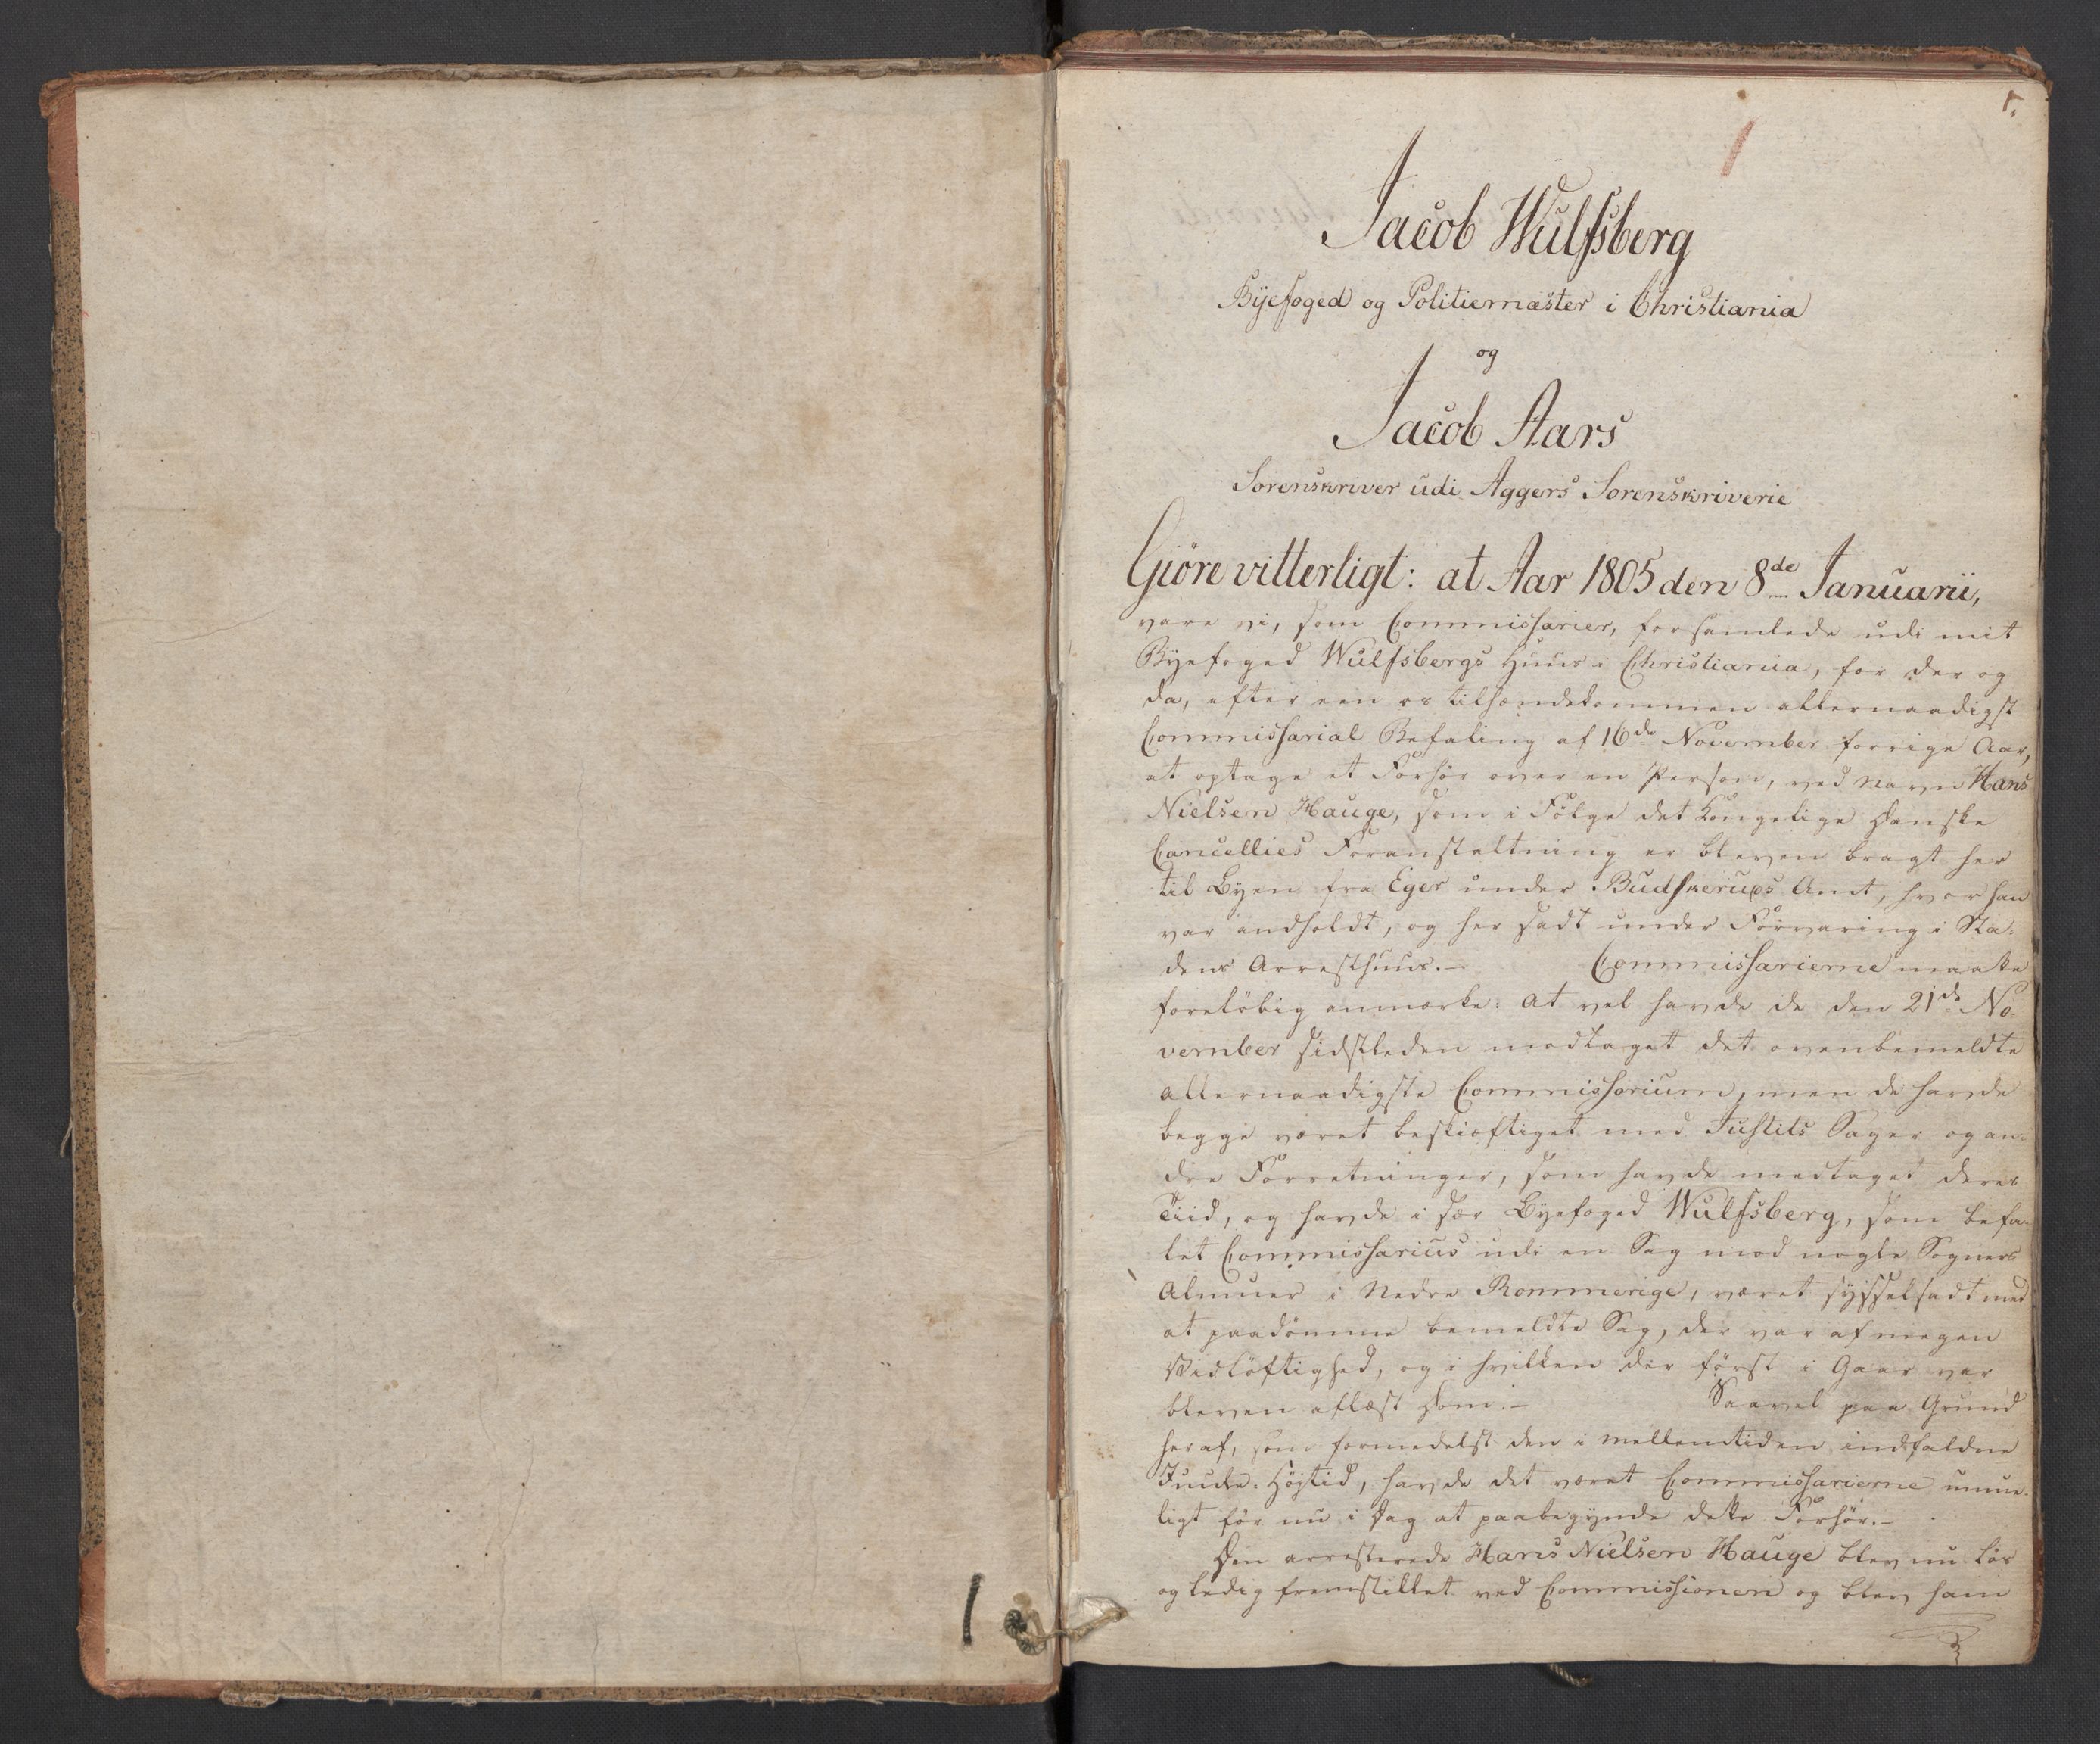 1.
1
Jacob Wulfsberg
Byefoged og Politiemæster i Christiania
og
Jacob Aars
Sorenskriver udi Aggers Sorenskriverie
Giöre vitterligt: at Aar 1805 den 8de Januarii,
vare vi, som Commissarier, forsamlede udi mit
Byefoged Wulfsbergs Huus i Christiania, for der og
da, efter een os tilhændekommen allernaadigst
Commissarial Befaling af 16de November forrige Aar,
at optage et Forhör over en Person, ved Navn Hans
Nielsen Hauge, som i Fölge det Kongelige Danske
Cancellies Foranstaltning er bleven bragt her
til Byen fra Eger under Budskeruds Amt, hvor han
var andholdt, og her sadt under Forvaring i Sta-
dens Arresthuus.- Commissarierne maatte
forelöbig anmærke: At vel havde de den 21de No-
vember sidstleden modtaget det ovenbemeldte
allernaadigste Commissorium, men de havde
begge været beskiæftiget med Justits Sager og an-
dre Forretninger, som havde medtaget deres
Tiid, og havde i sær Byefoged Wulfsberg, som befa-
let Commissarius udi en Sag mod nogle Sogners
Almuer i Nedre Rommerige, været sysselsadt med
at paadömme bemeldte Sag, der var af megen
Vidlöftighed, og i hvilken der först i Gaar var
bleven aflæst Dom.- Saavel paa Grund
heraf, som formedelst den i mellemtiden indfaldne
Juule-Höjtid, havde det været Commissarierne umue-
ligt för nu i Dag at paabegynde dette Forhör.-
Den arresterede Hans Nielsen Hauge blev nu lös
og ledig fremstillet ved Commissionen og blev ham
1